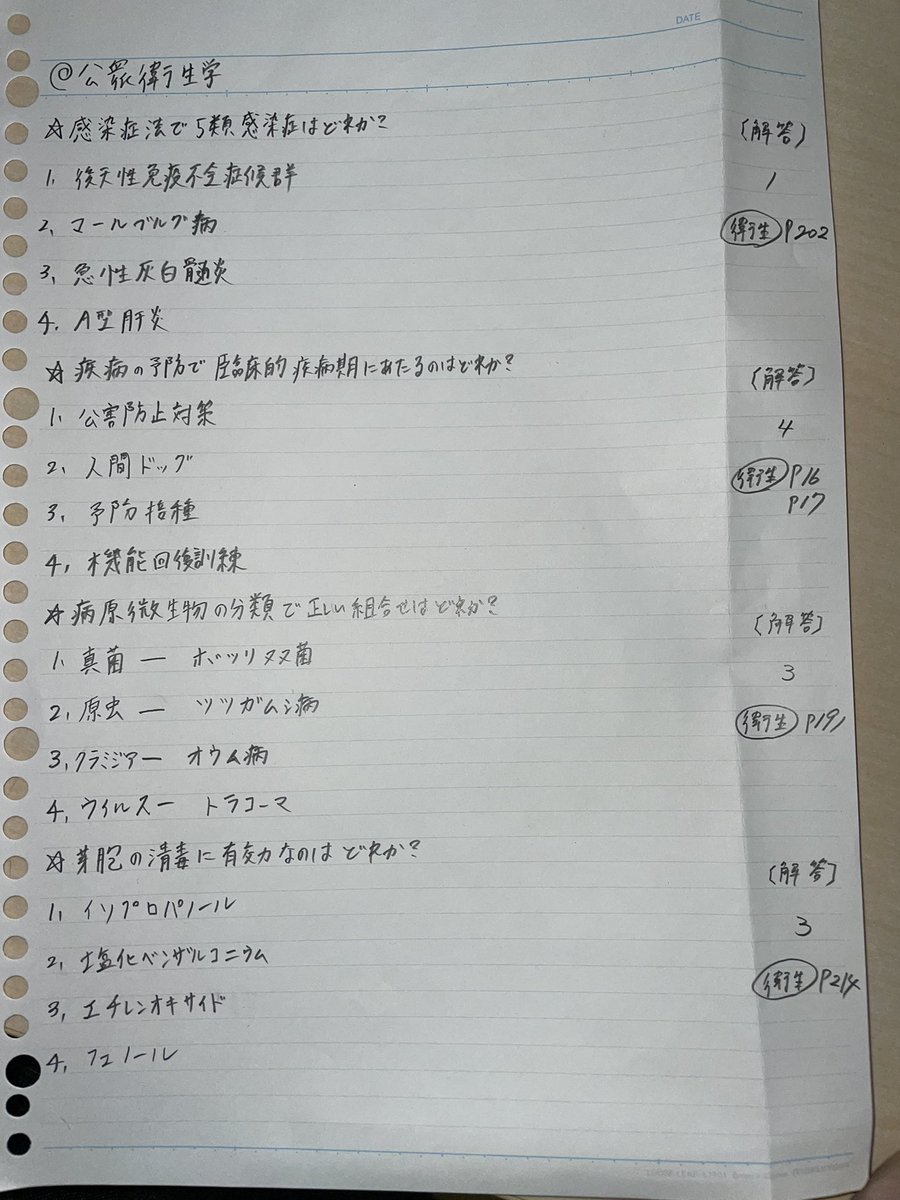 DATE
@公衆衛生学
☆感染症法で5類感染症はどれか?
(解答)
1. 後天性免疫不全症候群
1
2. マールブルグ病
衛生 P202
3. 急性灰白髄炎
4. A型肝炎
☆疾病の予防で臨床的疾病期にあたるのはどれか?
(解答)
1. 公害防止対策
4
2. 人間ドッグ
衛生 P16
P17
3. 予防接種
4. 機能回復訓練
☆病原微生物の分類で正しい組合せはどれか?
(解答)
1. 真菌 ー ボツリヌス菌
3
2. 原虫 ー ツツガムシ病
衛生 P191
3. クラミジアー オウム病
4. ウイルスー トラコーマ
☆芽胞の消毒に有効なのはどれか?
(解答)
1. イソプロパノール
3
2. 塩化ベンザルコニウム
衛生 P214
3. エチレンオキサイド
4. フェノール